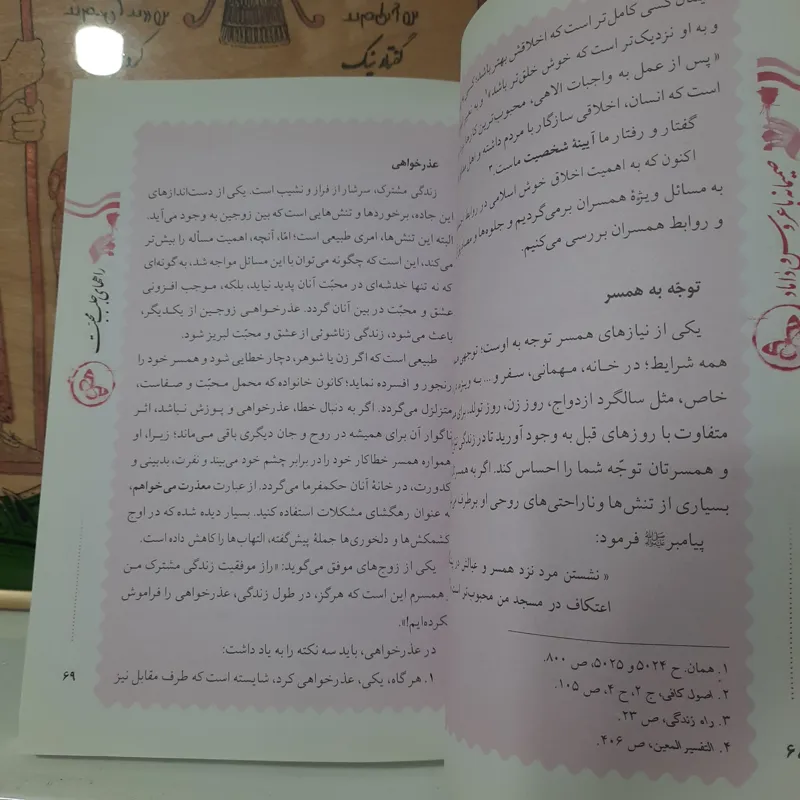 گفتار نیک
یمان کسی کامل‌تر است که اخلاقش بهتر باشد؛
و به او نزدیک‌تر است که خوش خلق‌تر باشد
« پس از عمل به واجبات الاهی، محبوب‌ترین
است که انسان، اخلاقی سازگار با مردم داشته
گفتار و رفتار ما آیینهٔ شخصیت ماست.
اکنون که به اهمیت اخلاق خوش اسلامی در روابط
به مسائل ویژهٔ همسران برمی‌گردیم و جلوه‌ها و
و روابط همسران بررسی می‌کنیم.
توجّه به همسر
یکی از نیازهای همسر توجه به اوست؛
همه شرایط؛ در خانه، مهمانی، سفر و... به ویژه
خاص، مثل سالگرد ازدواج، روز زن، روز تولد،
متفاوت با روزهای قبل به وجود آورید تا در زندگی
و همسرتان توجّه شما را احساس کند. اگر به
بسیاری از تنش‌ها و ناراحتی‌های روحی او برطرف
پیامبر ﷺ فرمود:
« نشستن مرد نزد همسر و عیالش
اعتکاف در مسجد من محبوب‌تر
۱. همان. ح ۵۰۲۴ و ۵۰۲۵، ص ۸۰۰.
۲. اصول کافی، ج ۲، ح ۴، ص ۱۰۵.
۳. راه زندگی، ص ۲۳.
۴. التفسیر المعین، ص ۴۰۶.
صمیمانه با عروس و داماد
عذرخواهی
زندگی مشترک، سرشار از فراز و نشیب است. یکی از دست‌اندازهای
این جاده، برخوردها و تنش‌هایی است که بین زوجین به وجود می‌آید.
البته این تنش‌ها، امری طبیعی است؛ امّا، آنچه، اهمیت مسأله را بیش‌تر
می‌کند، این است که چگونه می‌توان با این مسائل مواجه شد، به گونه‌ای
که نه تنها خدشه‌ای در محبّت آنان پدید نیاید، بلکه، موجب افزونی
عشق و محبّت در بین آنان گردد. عذرخواهی زوجین از یکدیگر،
باعث می‌شود، زندگی زناشوئی از عشق و محبّت لبریز شود.
طبیعی است که اگر زن یا شوهر، دچار خطایی شود و همسر خود را
رنجور و افسرده نماید؛ کانون خانواده که محمل محبّت و صفاست،
متزلزل می‌گردد. اگر به دنبال خطا، عذرخواهی و پوزش نباشد، اثر
ناگوار آن برای همیشه در روح و جان دیگری باقی می‌ماند؛ زیرا، او
همواره همسر خطاکار خود را در برابر چشم خود می‌بیند و نفرت، بدبینی و
کدورت، در خانهٔ آنان حکمفرما می‌گردد. از عبارت معذرت می‌خواهم،
به عنوان رهگشای مشکلات استفاده کنید. بسیار دیده شده که در اوج
کشمکش‌ها و دلخوری‌ها جملهٔ پیش‌گفته، التهاب‌ها را کاهش داده است.
یکی از زوج‌های موفق می‌گوید: «راز موفقیت زندگی مشترک من
و همسرم این است که هرگز، در طول زندگی، عذرخواهی را فراموش
نکرده‌ایم!».
در عذرخواهی، باید سه نکته را به یاد داشت:
۱. هر گاه، یکی، عذرخواهی کرد، شایسته است که طرف مقابل نیز
راهنمای جلب محبت
۶۹